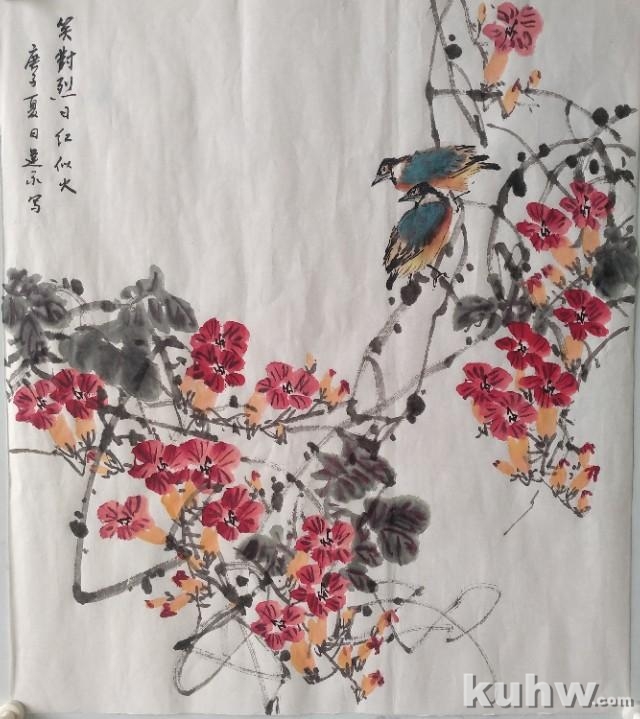 笑對烈日红似火
庚子夏日
写
kuhw.com